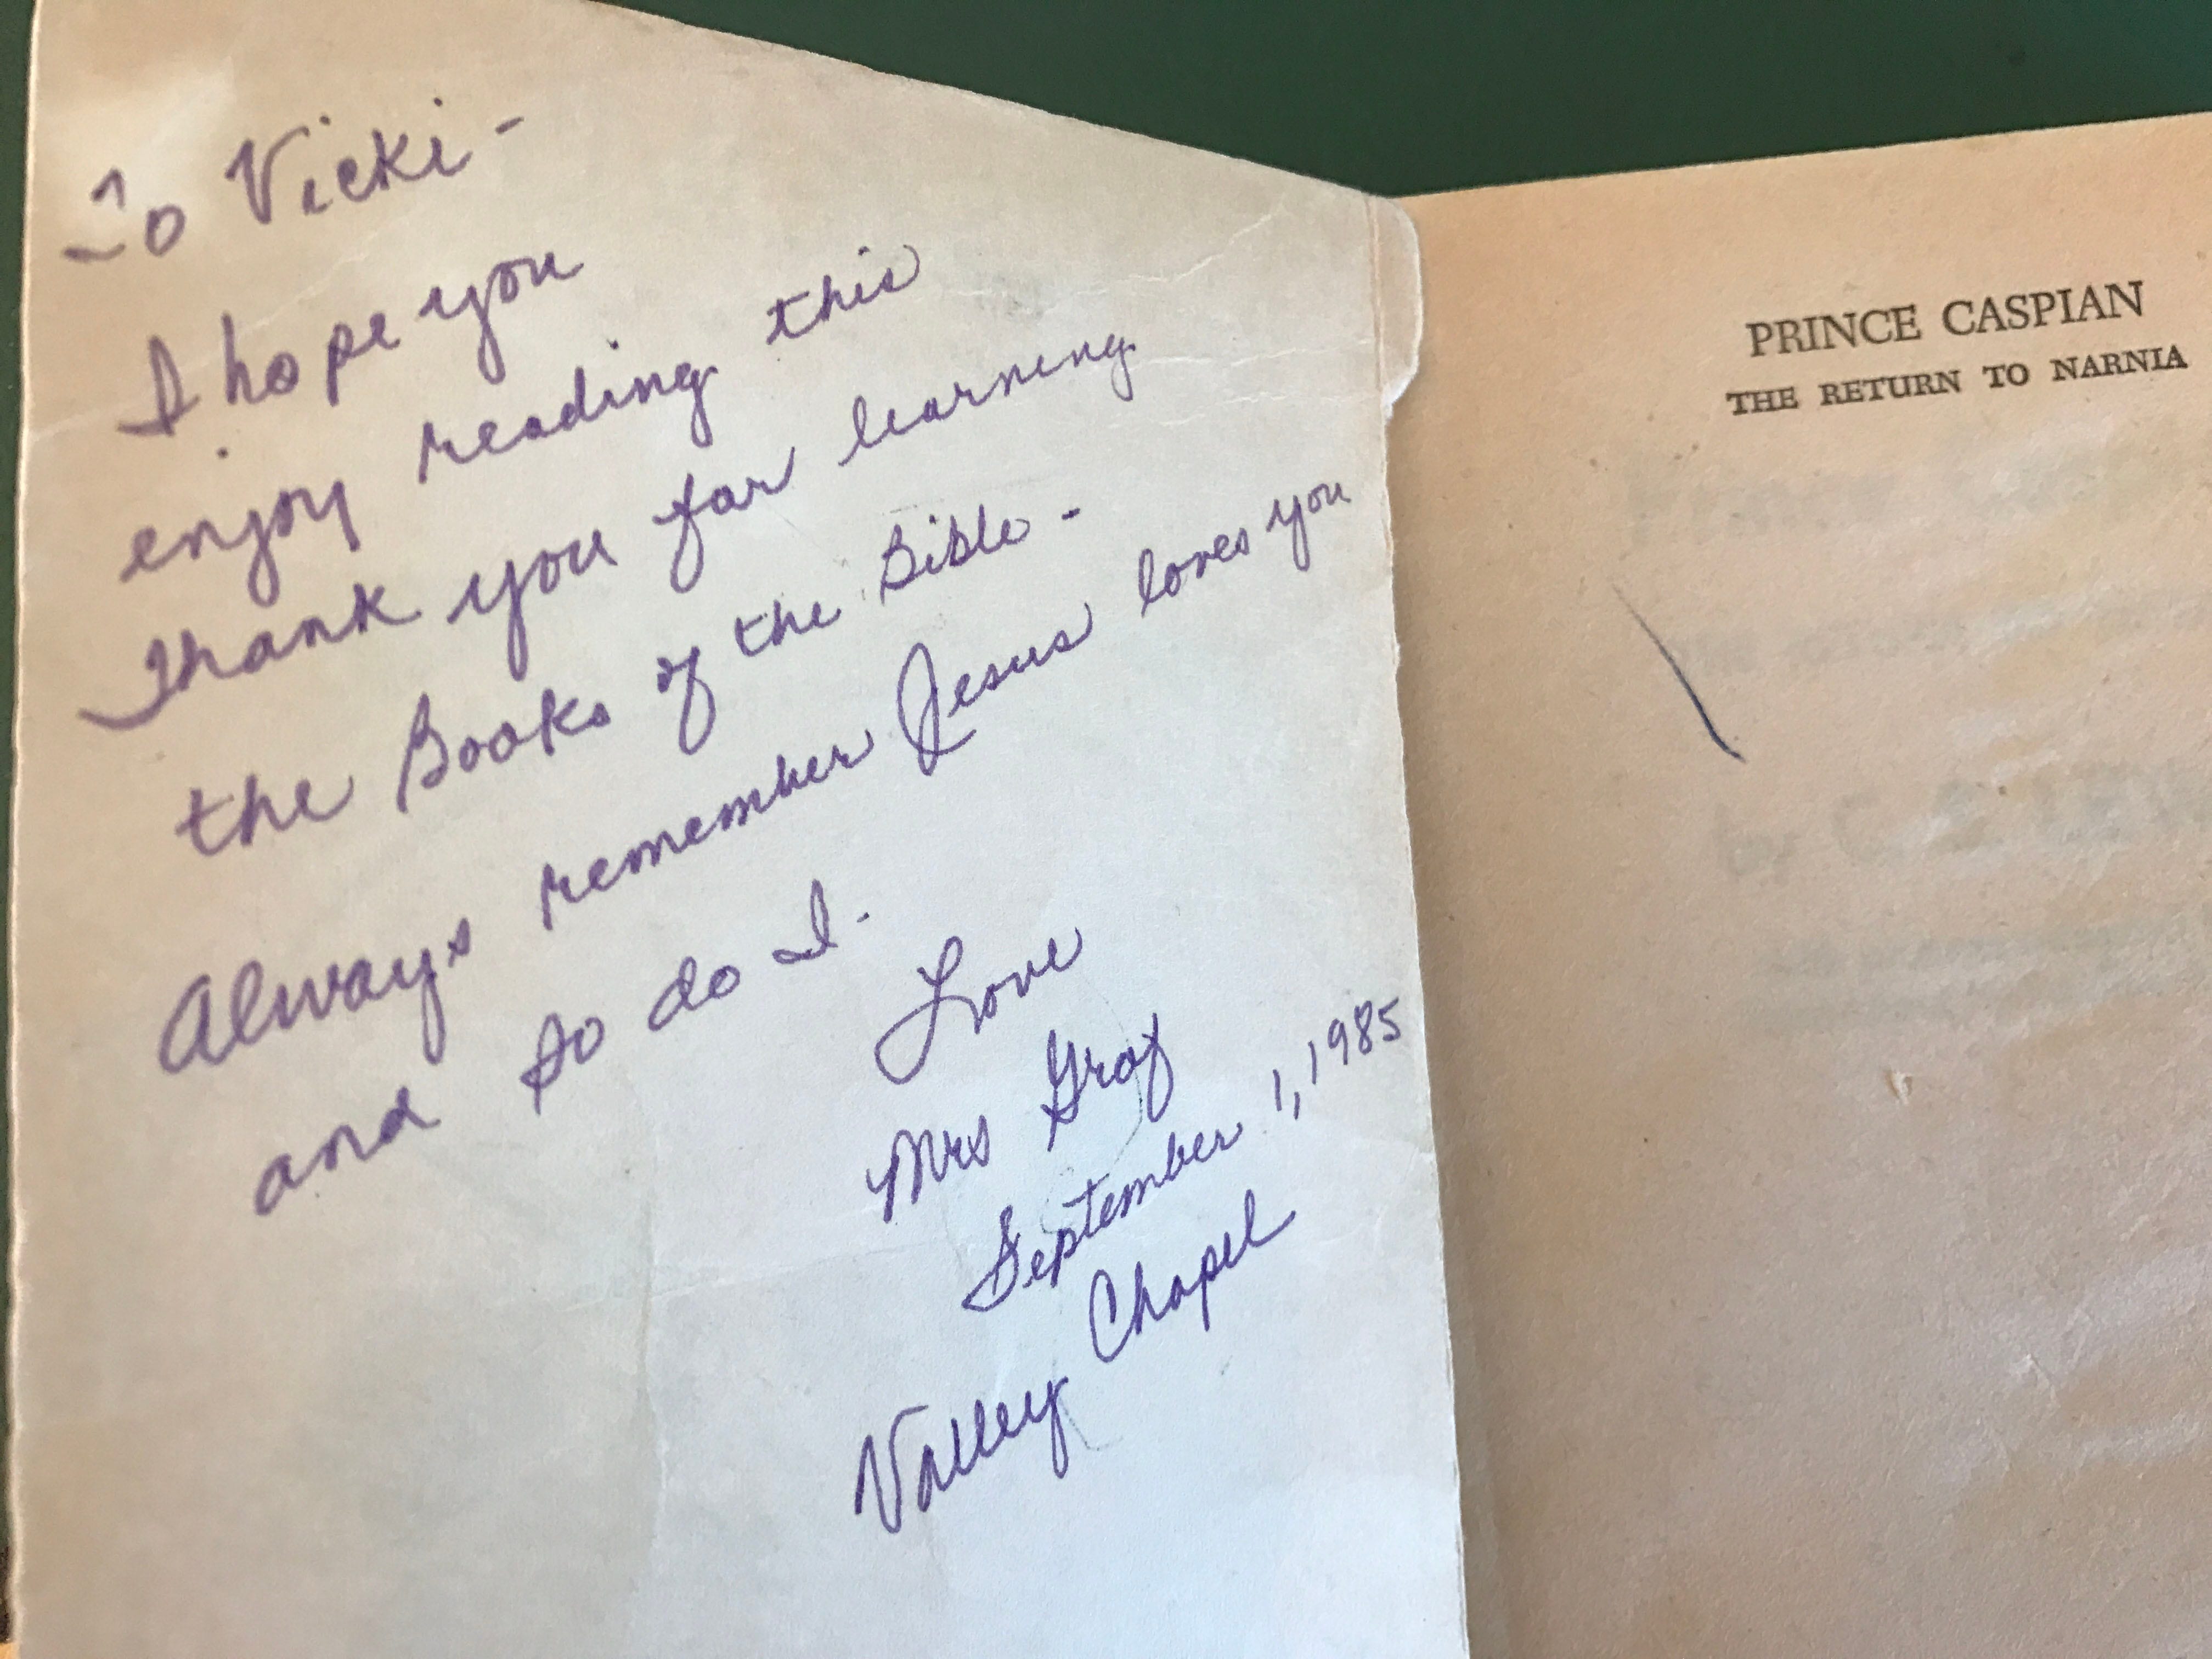 To Vicki -
I hope you
enjoy reading this
Thank you for learning
the Books of the Bible -
Always remember Jesus loves you
and so do I.
Love
Mrs Graf
September 1, 1985
Valley Chapel
PRINCE CASPIAN
THE RETURN TO NARNIA